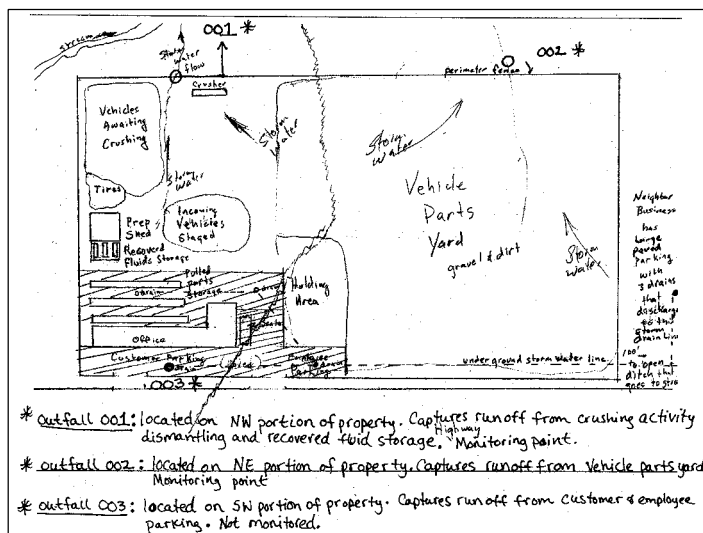 stream
001 *
Storm
water
flow
002 *
perimeter fence
Crusher
Vehicles
Awaiting
Crushing
Storm
Water
Storm
Water
Storm
Water
Vehicle
Parts
Yard
gravel & dirt
Storm
Water
Tires
Incoming
Vehicles
Staged
Prep
Shed
Recovered
Fluids Storage
Neighbor
Business
has
large
paved
parking
with
3 drains
that
discharge
to the
storm
drain line
Pulled
parts
Storage
drain
drain
Holding
Area
Office
Customer Parking
drain
(paved)
Employee
Parking
drain
underground storm water line
100'
to open
ditch that
goes to
003 *
* outfall 001: located on NW portion of property. Captures runoff from crushing activity
dismantling and recovered fluid storage. Highway Monitoring point.
* outfall 002: located on NE portion of property. Captures runoff from Vehicle parts yard
Monitoring point
* outfall 003: located on SW portion of property. Captures runoff from customer & employee
parking. Not monitored.